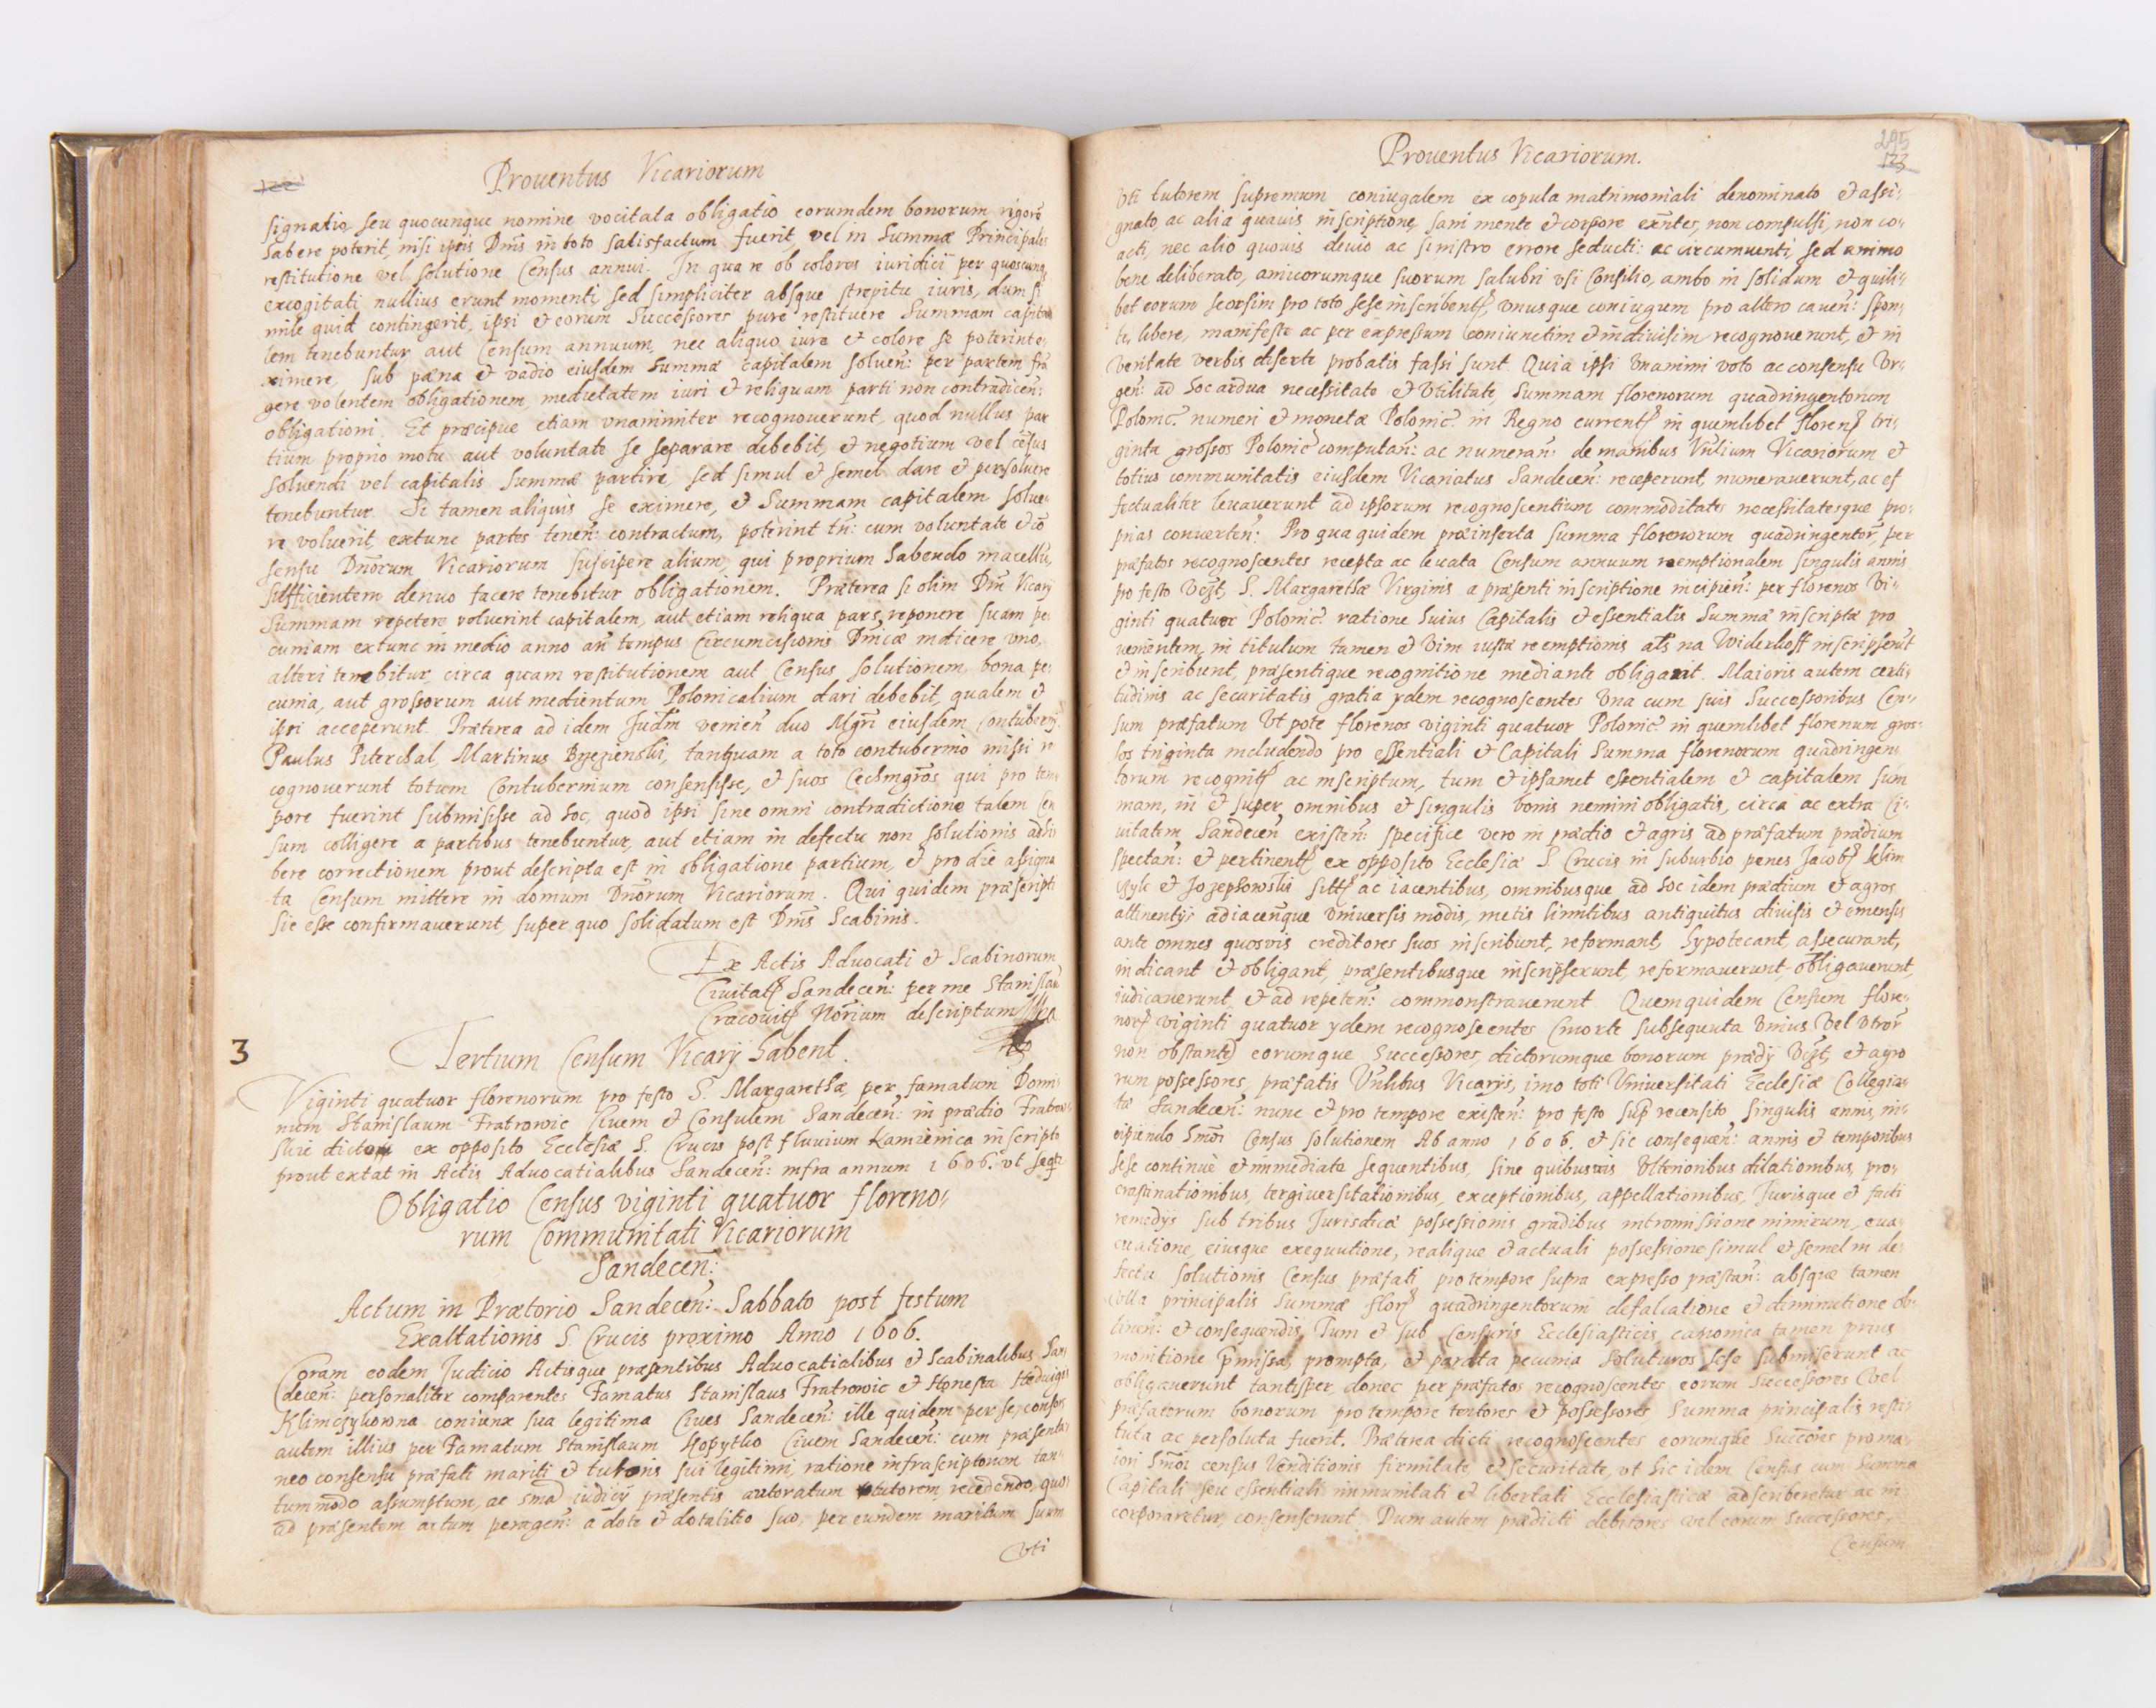 122
Prouentus Vicariorum
signatio, seu quocunque nomine vocitata obligatio eorumdem bonorum rigorē
habere poterit, nisi ipsis Dnīs in toto satisfactum fuerit, vel in Summæ Principalis
restitutione vel solutione Census annui. In qua re ob colores iuridici per quoscunq
excogitati nullius erunt momenti, sed simpliciter absque strepitu iuris, dum si
mile quid contingerit, ipsi et eorum Successores pure restituere Summam capita
lem tenebuntur aut Censum annuum, nec aliquo iure et colore se poterint e
ximere, sub pæna et vadio eiusdem Summæ capitalem soluen: per partem fra
gere volentem obligationem, medietatem iuri et reliquam parti non contradicen:
obligationi. Et præcipue etiam vnanimiter recognouerunt, quod nullus par
tium proprio motu aut voluntate se separare debebit, et negotium vel cēsus
soluendi vel capitalis Summæ partire, sed simul et semel dare et persoluere
tenebuntur. Si tamen aliquis se eximere, et Summam capitalem solue
re voluerit, extunc partes tenen: contractum, poterint tn: cum voluntate et cō
sensu Dnōrum Vicariorum suscipere alium, qui proprium habendo macellū,
sufficientem denuo facere tenebitur obligationem. Præterea si olim Dnī Vicarij
Summam repetere voluerint capitalem, aut etiam reliqua pars reponere suam pe
cuniam extunc in medio anno an tempus Circumcisionis Dnicæ indicere vno
alteri tenebitur, circa quam restitutionem aut Census, solutionem, bona pe
cunia, aut grossorum aut medientum Polonicalium dari debebit, qualem et
ipsi acceperunt. Præterea ad idem Judm venien duo Mgrī eiusdem Contubernij
Paulus Piterchal, Martinus Brzezienski, tanquam a toto contubernio missi re
cognouerunt totum Contubernium consensisse, et suos Cechmgrōs, qui pro tem
pore fuerint submisisse ad hoc, quod ipsi sine omni contradictione talem Cen
sum colligere a partibus tenebuntur, aut etiam in defectu non solutionis adhi
bere correctionem prout descripta est in obligatione partium, et pro die assigna
ta Censum mittere in domum Dnōrum Vicariorum. Qui quidem præscripti
sic esse confirmauerunt, super quo solidatum est Dnīs Scabinis.
Ex Actis Aduocati et Scabinorum
Ciuitat Sandecen: per me Stanislau
Cracouit Norium descriptum
3
Tertium Censum Vicarij habent.
Viginti quatuor florenorum pro festo S. Margarethæ, per famatum Domi
num Stanislaum Fratrowic Ciuem et Consulem Sandecen: in prædio Fratrow
skie dictou ex opposito Ecclesiæ S. Crucis post fluuium Kamienica inscripto
prout extat in Actis Aduocatialibus Sandecen: infra annum 1606. vt seqt
Obligatio Census viginti quatuor floreno,
rum Communitati Vicariorum
Sandecen:
Actum in Prætorio Sandecen: Sabbato post festum
Exaltationis S. Crucis proximo Anno 1606.
Coram eodem Judicio Actisque præsentibus Aduocatialibus et Scabinalibus San
decen: personaliter comparentes Famatus Stanislaus Fratrowic et Honesta Heduigis
Klimczykowna coniunx sua legitima Ciues Sandecen: ille quidem per se, consors
autem illius per Famatum Stanislaum Kopytko Ciuem Sandecen: cum præsenta
neo consensu præfati mariti et tutoris sui legitimi, ratione infrascriptorum tan
tummodo assumptum, ac sma iudicij præsentis autoratum tutorem, recedendo, quo
ad præsentem actum peragen: a dote et dotalitio suo, per eundem maritum suum
vti
Prouentus Vicariorum.
245
123
vti tutorem supremum coniugalem ex copula matrimoniali denominato et assi,
gnato, ac alia quauis inscriptione, sani mente et corpore exntes, non compulsi, non co,
acti, nec alio quouis deuio ac sinistro errore seducti: ac circumuenti, sed animo
bene deliberato, amicorumque suorum salubri vsi Consilio, ambo in solidum et quili,
bet eorum seorsim pro toto sese inscribent, vnusque coniugum pro altero cauen: spon,
te, libere, manifeste ac per expressum coniunctim et indiuisim recognouerunt, et in
veritate verbis diserte probatis fassi sunt. Quia ipsi vnanimi voto ac consensu vr,
gen: ad hoc ardua necessitate et vtilitate, Summam florenorum quadringentorum
Polonic numeri et monetæ Polonic in Regno current in quemlibet floren tri,
ginta grossos Polonic computan: ac numeran: de manibus Vnlium Vicariorum et
totius communitatis eiusdem Vicariatus Sandecen: receperunt, numerauerunt, ac ef
fectualiter leuauerunt ad ipsorum recognoscentium commoditates necessitatesque pro,
prias conuerten: Pro qua quidem præinserta Summa florenorum quadringentor, per
præfatos recognoscentes recepta ac leuata Censum annuum reemptionalem singulis annis
pro festo vczt S. Margarethæ Virginis a præsenti inscriptione incipien: per florenos vi,
ginti quatuor Polonic ratione huius Capitalis et essentialis Summæ inscriptæ pro
uenientem, in titulum tamen et vim iustæ reemptionis als na Widerkoff inscripserut
et inscribunt, præsentique recognitione mediante obligarut. Maioris autem certi,
tudinis ac securitatis gratia ydem recognoscentes vna cum suis Successoribus Cen,
sum præfatum vt pote florenos viginti quatuor Polonic in quemlibet florenum gros
sos triginta includendo pro essentiali et Capitali Summa florenorum quadringen,
torum recognit ac inscriptum, tum et ipsamet essentialem et capitalem sum
mam, in et super omnibus et singulis bonis nemini obligatis, circa ac extra Ci,
uitatem Sandecen existen: specifice vero in prædio et agris ad præfatum prædium
spectan: et pertinent ex opposito Ecclesiæ S. Crucis in suburbio penes Jacob Klim
czyk et Jozephowski sitt ac iacentibus, omnibusque ad hoc idem prædium et agros
attinentijs adiacenque vniuersis modis, metis limitibus antiquitus diuisis et emensis
ante omnes quosuis creditores suos inscribunt, reformant, hypotecant, assecurant,
indicant et obligant, præsentibusque inscripserunt, reformauerunt obligauerunt,
iudicauerunt, et ad repeten: commonstrauerunt. Quemquidem Censum flore,
nor viginti quatuor ydem recognoscentes (morte subsequuta vnius vel vtror
non obstante) eorumque Successores, dictorumque bonorum prædij vczt et agro
rum possessores, præfatis Vnlibus Vicarijs, imo toti Vniuersitati Ecclesiæ Collegia,
tæ Sandecen: nunc et pro tempore existen: pro festo sup recensito singulis annis, in,
cipiendo Smōi Census solutionem Ab anno 1606. et sic consequen: annis et temporibus
sese continuè et immediate sequentibus, sine quibusuis vlterioribus dilationibus, pro,
crastinationibus, tergiuersitationibus, exceptionibus, appellationibus, Jurisque et facti
remedijs sub tribus Jurisdicæ possessionis gradibus intromissione nimirum, eua,
cuatione, eiusque exequutione, realique et actuali possessione simul et semel in de,
fectu solutionis Census præfati pro tempore supra expresso præstan: absque tamen
vlla principalis Summæ flor quadringentorum defalcatione et diminutione ob,
tinen: et consequendis. Tum et sub Censuris Ecclesiasticis, canonica tamen prius
monitione pmissa, prompta, et parata pecunia soluturos sese submiserunt ac
obligauerunt tantisper, donec per præfatos recognoscentes eorum Successores vel
præfatorum bonorum pro tempore tentores et possessores Summa principalis resti,
tuta ac persoluta fuerit. Præterea dicti recognoscentes eorumque Succōres pro ma,
iori Smōi census venditionis firmitate, et securitate, vt hic idem Census cum Summa
Capitali seu essentiali immunitati et libertati Ecclesiasticæ adscriberetur ac in
corporaretur, consenserunt. Dum autem prædicti debitores vel eorum Successores,
Censum